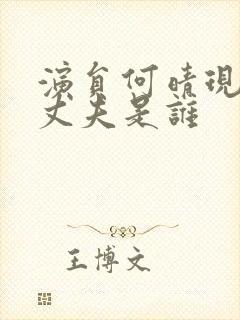 演員何晴現
丈夫是誰
王博文